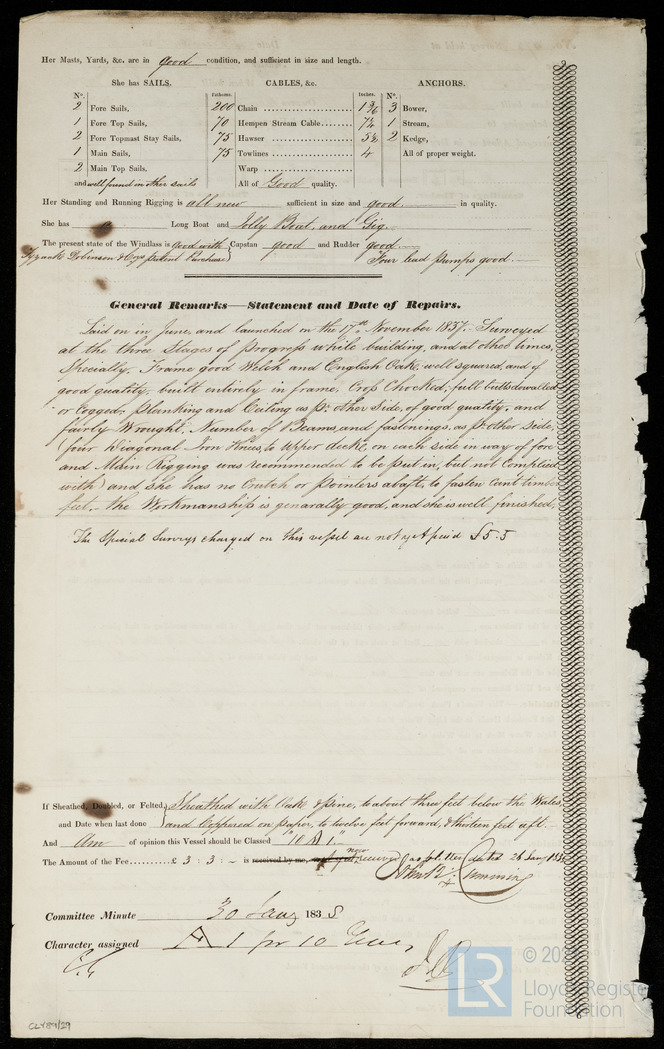 Her Masts, Yards, &c. are in good condition, and sufficient in size and length.
She has SAILS. CABLES, &c. ANCHORS.
No. Fathoms. Inches. No.
2 Fore Sails, 200 Chain 1 3 Bower,
1 Fore Top Sails, 70 Hempen Stream Cable 7½ 1 Stream,
2 Fore Topmast Stay Sails, 75 Hawser 5½ 2 Kedge,
1 Main Sails, 75 Towlines 4 All of proper weight.
2 Main Top Sails, Warp
and well found in other sails All of Good quality.
Her Standing and Running Rigging is all new sufficient in size and good in quality.
She has a Long Boat and Jolly Boat, and Gig.
The present state of the Windlass is good with Capstan good and Rudder good.
Robinson & patent Purchase Four lead pumps good.
General Remarks—Statement and Date of Repairs.
Laid on in June, and launched on the 17th November 1837. Surveyed
at the three Stages of progress while building, and at other times,
Specially. Frame good Welch and English Oak, well squared, and of
good quality, built entirely in frame, Crop Chocked, full butts dowalled
or Cogged. planking and Ceiling as pr. other Side, of good quality, and
fairly Wrought. Number of Beams, and fastenings, as pr other side,
(four Diagonal Iron Knees, to upper decks, on each side in way of fore
and Mizen Rigging was recommended to be put in, but not Complied
with) and she has no Crutch or pointers abaft, to fasten Cant timber
feet, the Workmanship is genarally good, and she is well finished,
The Special Surveys charged on this vessel are not yet paid £5.5
If Sheathed, Doubled, or Felted, Sheathed with Oak & pine, to about three feet below the Wales,
and Date when last done and Coppered on paper, to twelve feet forward, & thirteen feet aft.
And Am of opinion this Vessel should be Classed "10 A 1"
The Amount of the Fee £ 3 : 3 : - is received by me, now received as pr letter dated 26 Jany
Committee Minute 30 Jany 1838
Character assigned A 1 for 10 Years
LR
© 202
Lloyd's Register
Foundation